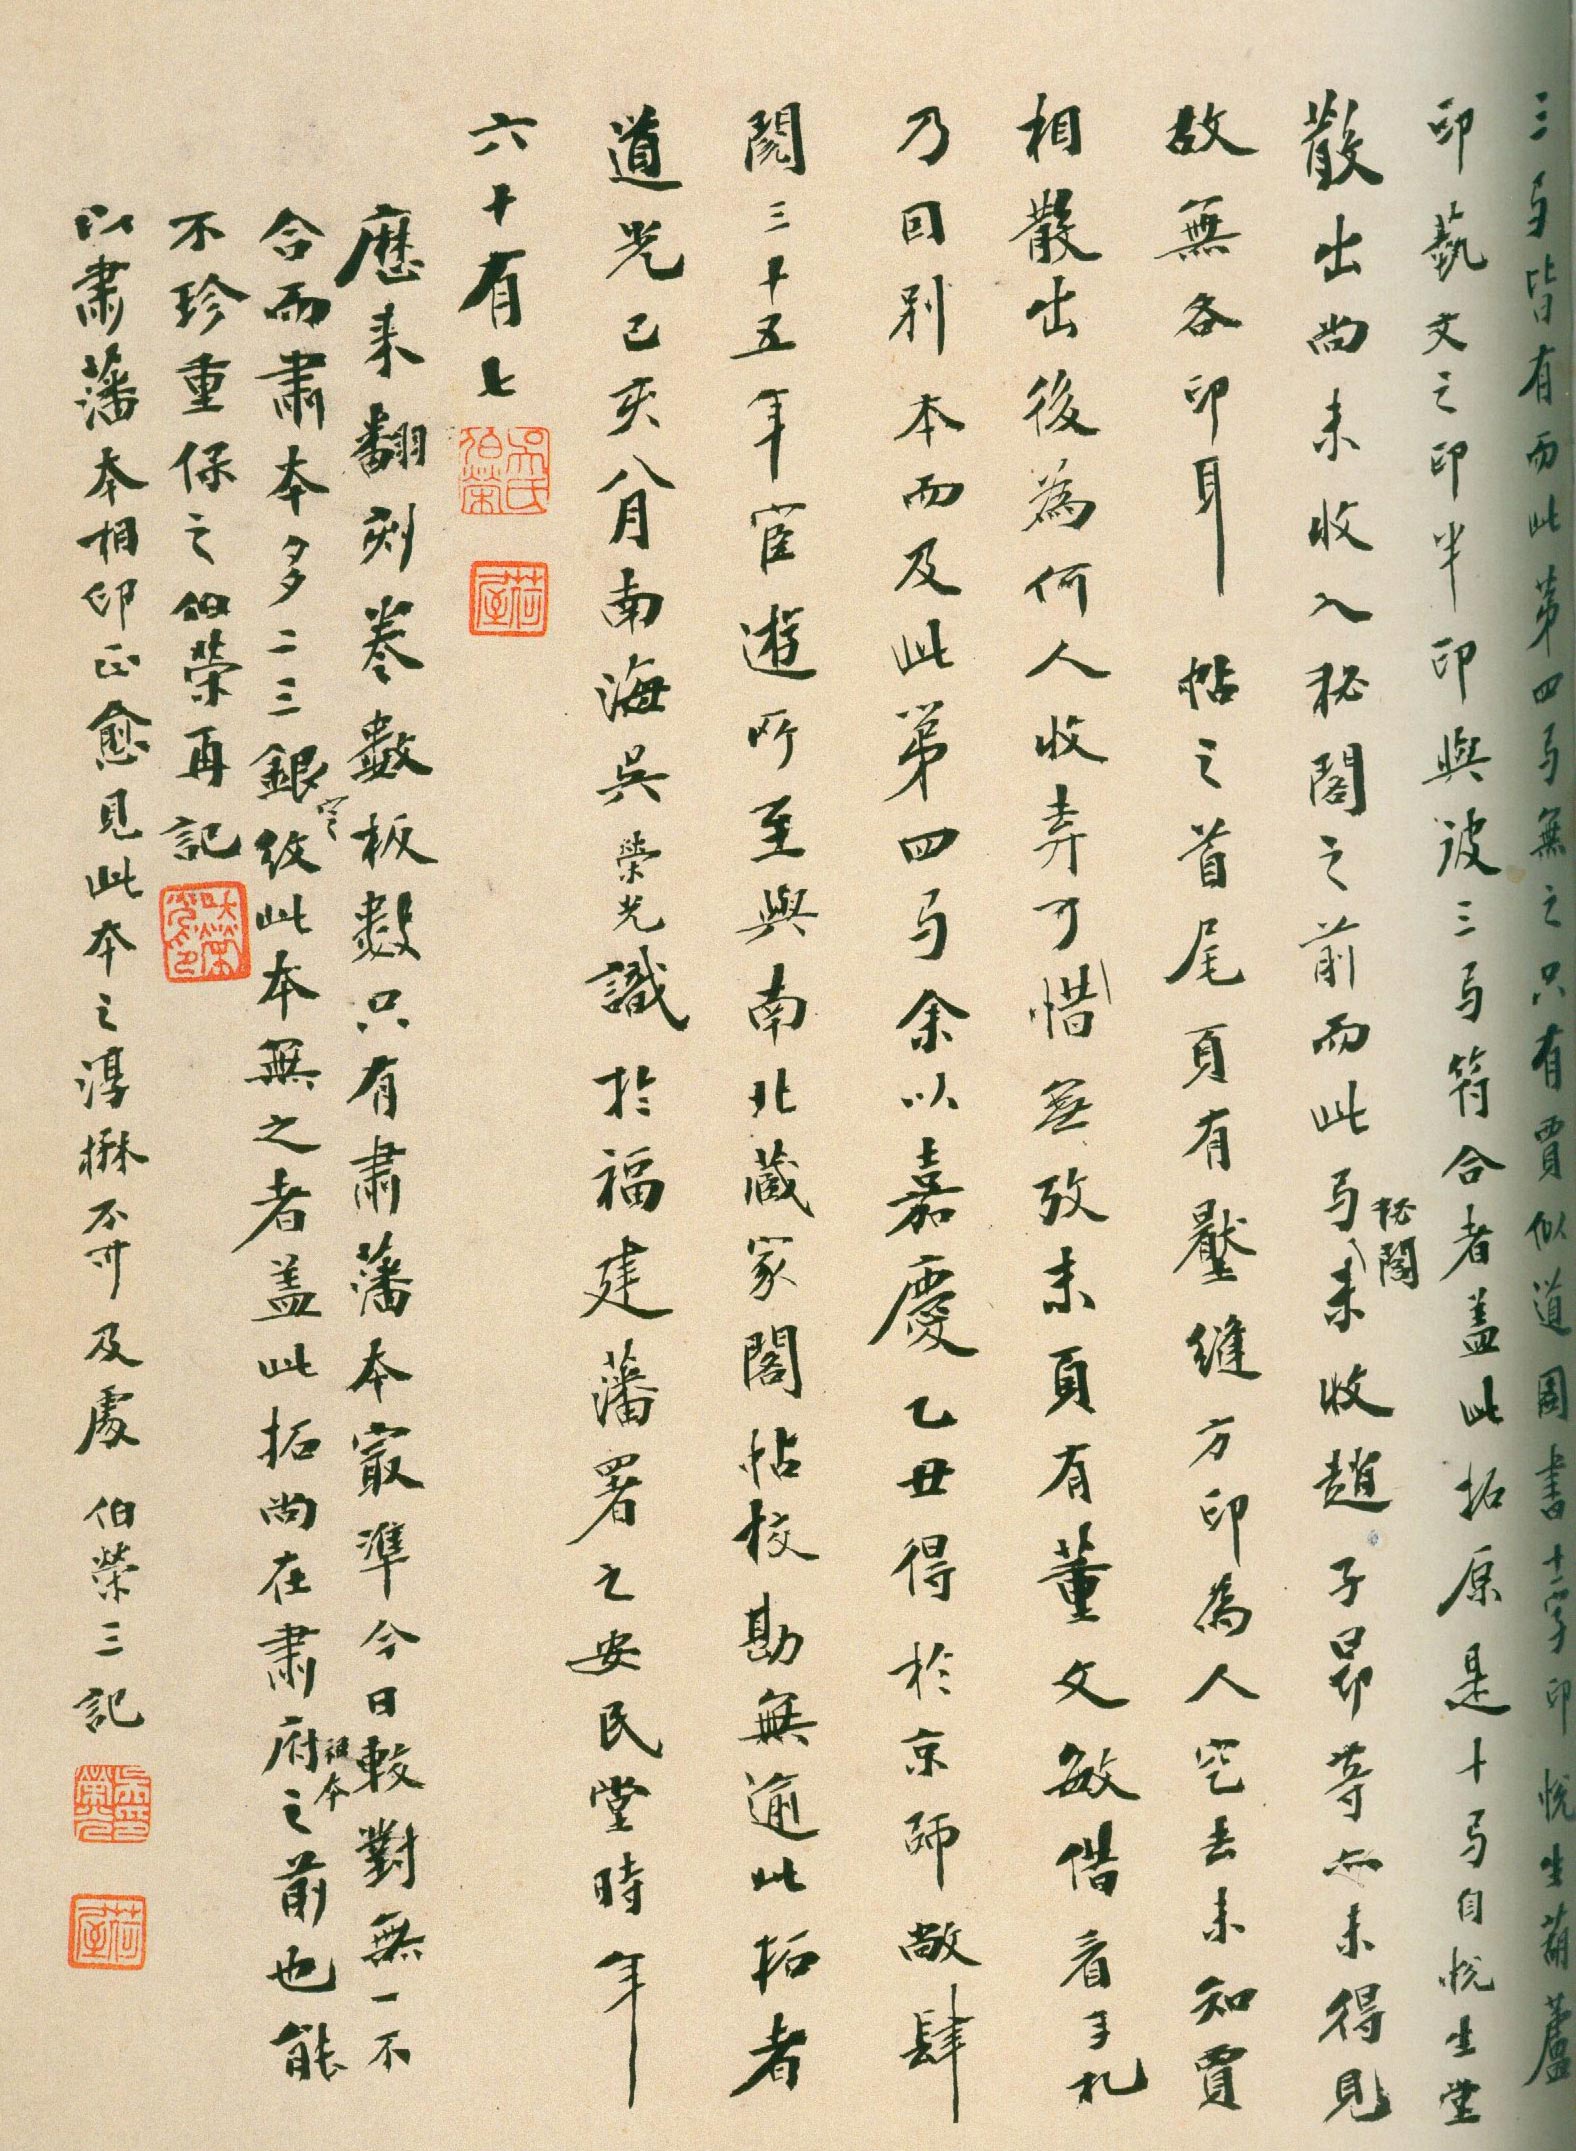 三弓皆有而此第四弓無之只有賈似道圖書十二字印悅生葫蘆
印藝文之印半印與彼三弓符合者蓋此拓原是十弓自悅生堂
散出尚未收入秘閣之前而此弓秘閣未收趙子昂等亦未得見
故無各印耳 帖之首尾頁有壓縫方印為人空去未知賈
相散出後為何人收弆可惜無攷末頁有董文敏借看手札
乃因別本而及此第四弓余以嘉慶乙丑得於京師敞肆
閱三十五年宦遊所至與南北藏家閣帖校勘無逾此拓者
道光己亥八月南海吳榮光識於福建藩署之安民堂時年
六十有七
歷來翻刻卷數板數只有肅藩本最準今日較對無一不
合而肅本多二三銀錠紋此本無之者蓋此拓尚在肅府祖本之前也能
不珍重保之伯榮再記
以肅藩本相印正愈見此本之淳楙不可及處 伯榮三記
吳氏伯榮
荷屋
吳榮光印
荷屋